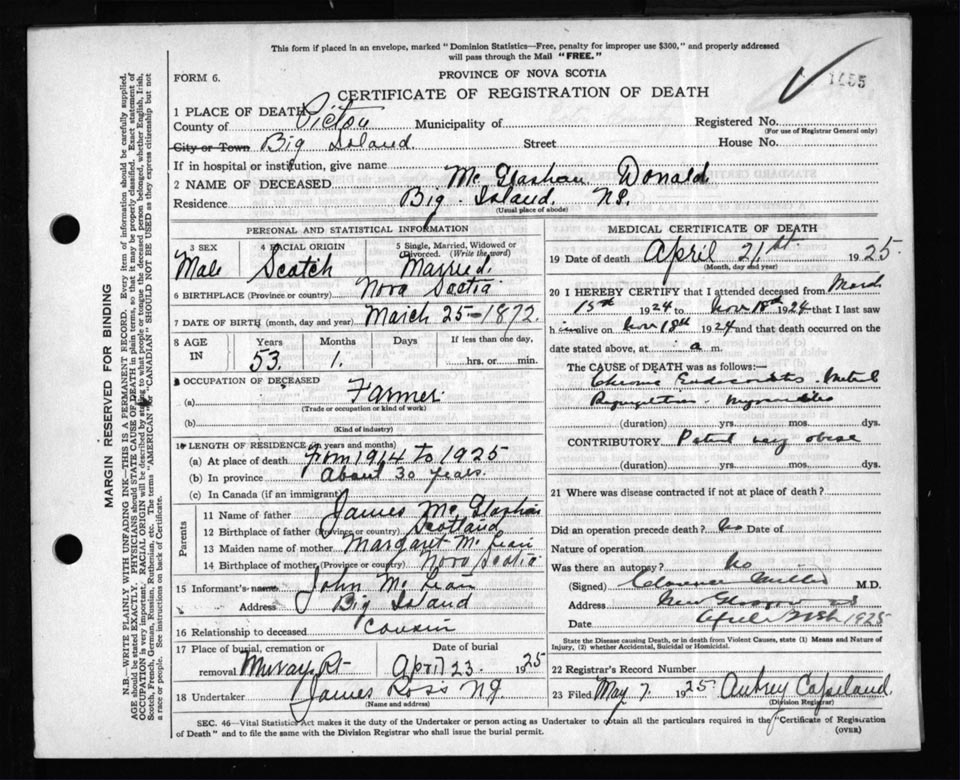 This form if placed in an envelope, marked "Dominion Statistics—Free, penalty for improper use $300," and properly addressed
will pass through the Mail "FREE."
FORM 6.
PROVINCE OF NOVA SCOTIA
1455
CERTIFICATE OF REGISTRATION OF DEATH
1 PLACE OF DEATH
County of Pictou Municipality of Registered No.
(For use of Registrar General only)
City or Town Big Island Street House No.
If in hospital or institution, give name
2 NAME OF DECEASED Mc Glashan Donald
Residence Big Island. NS.
(Usual place of abode)
PERSONAL AND STATISTICAL INFORMATION
3 SEX 4 RACIAL ORIGIN 5 Single, Married, Widowed or
Divorced. (Write the word)
Male Scotch Married.
6 BIRTHPLACE (Province or country) Nova Scotia
7 DATE OF BIRTH (month, day and year) March 25-1872.
8 AGE IN Years Months Days If less than one day,
53. 1. hrs. or min.
9 OCCUPATION OF DECEASED
(a) Farmer
(Trade or occupation or kind of work)
(b)
(Kind of industry)
10 LENGTH OF RESIDENCE (in years and months)
(a) At place of death from 1914 to 1925
(b) In province About 30 years.
(c) In Canada (if an immigrant)
Parents
11 Name of father James Mc Glashan
12 Birthplace of father (Province or country) Scotland
13 Maiden name of mother Margaret Mc Lean
14 Birthplace of mother (Province or country) Nova Scotia
15 Informant's name John Mc Lean
Address Big Island
16 Relationship to deceased Cousin
17 Place of burial, cremation or Date of burial
removal Murray Pt April 23. 1925
18 Undertaker James Ross N.G.
(Name and address)
MEDICAL CERTIFICATE OF DEATH
19 Date of death April 21st 1925.
(Month, day and year)
20 I HEREBY CERTIFY that I attended deceased from March
15th 1924 to Nov 18th 1924 that I last saw
him alive on Nov 18th 1924 and that death occurred on the
date stated above, at a m.
The CAUSE OF DEATH was as follows:—
Chronic Endocarditis. Mitral
Regurgitation. Myocarditis
(duration) yrs. mos. dys.
CONTRIBUTORY Patient very obese
(duration) yrs. mos. dys.
21 Where was disease contracted if not at place of death?
Did an operation precede death? No Date of
Nature of operation
Was there an autopsy? No
(Signed) Clarence Miller M.D.
Address New Glasgow NS
Date April 1925
State the Disease causing Death, or in death from Violent Causes, state (1) Means and Nature of
Injury, (2) whether Accidental, Suicidal or Homicidal.
22 Registrar's Record Number
23 Filed May 7. 1925. Aubrey Copeland.
(Division Registrar)
SEC. 46—Vital Statistics Act makes it the duty of the Undertaker or person acting as Undertaker to obtain all the particulars required in the "Certificate of Registration
of Death" and to file the same with the Division Registrar who shall issue the burial permit.
(OVER)
MARGIN RESERVED FOR BINDING
N.B.—WRITE PLAINLY WITH UNFADING INK—THIS IS A PERMANENT RECORD. Every item of information should be carefully supplied.
AGE should be stated EXACTLY. PHYSICIANS should STATE CAUSE OF DEATH in plain terms, so that it may be properly classified. Exact statement of
OCCUPATION is very important. RACIAL ORIGIN will be described by stating to what people or tongue the deceased person belonged, whether English, Irish,
Scotch, French, German, Russian, Ruthenian, etc. The terms "AMERICAN" or "CANADIAN" SHOULD NOT BE USED as they express citizenship but not
a race or people. See instructions on back of Certificate.